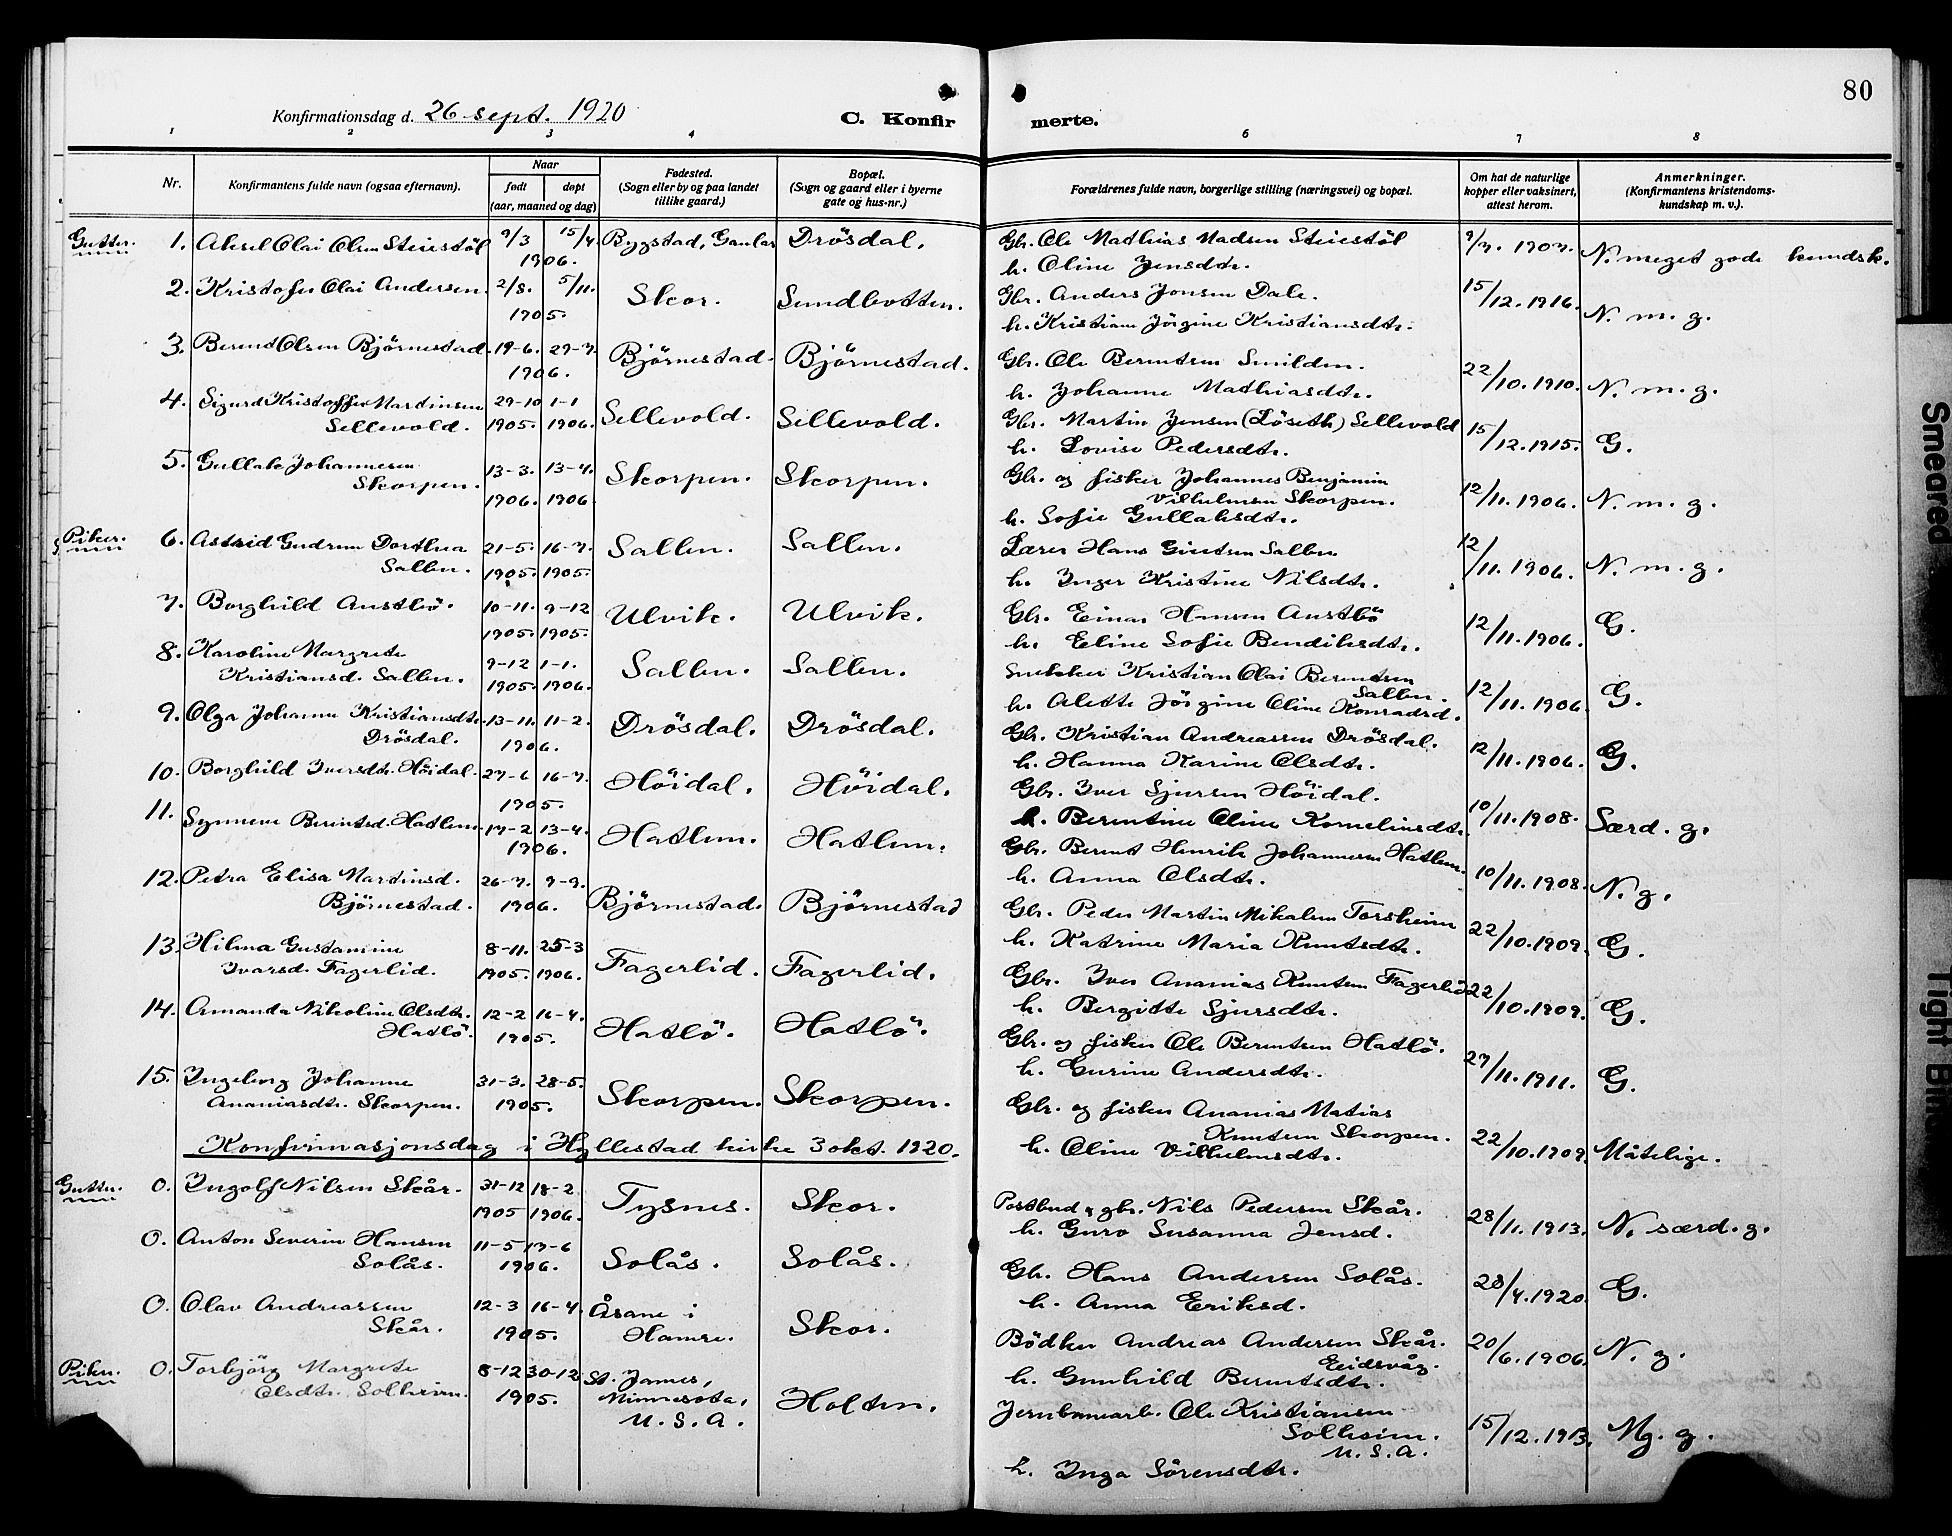 80
Konfirmationsdag d. 26 sept. 1920
C. Konfir merte.
1 2 3 4 6 7 8
Nr.
Konfirmantens fulde navn (ogsaa efternavn).
Naar
født døpt
(aar, maaned og dag)
Fødested.
(Sogn eller by og paa landet
tillike gaard.)
Bopæl.
(Sogn og gaard eller i byerne
gate og hus-nr.)
Forældrenes fulde navn, borgerlige stilling (næringsvei) og bopæl.
Om hat de naturlige
kopper eller vaksinert,
attest herom.
Anmerkninger.
(Konfirmantens kristendoms-
kundskap m. v.).
Gutter. 1. Aksel Olai Olsen Steiestøl 9/3 15/4 1906. Bygstad, Gaular Drösdal. Gbr. Ole Mathias Madsen Steiestøl
h. Oline Jensdtr. 9/7. 1907. N. meget gode kundsk.
2. Kristofer Olai Andersen. 2/8. 5/11. 1905. Skor. Sundbotten. Gbr. Anders Jonsen Dale.
h. Kristiane Jörgine Kristiansdtr. 15/12. 1916. N. m. g.
3. Berent Olsen Björnestad. 19-6. 29-7. 1906. Björnestad. Björnestad. Gbr. Ole Berentsen Smilden.
h. Johanne Mathiasdtr. 22/10. 1910. N. m. g.
4. Sigurd Kristoffer Martinsen
Sellevold. 29-10 1905. 1-1 1906. Sellevold. Sellevold. Gbr. Martin Jensen (Löseth) Sellevold
h. Lovise Pedersdtr. 15/12. 1915. G.
5. Gullak Johannesen
Skorpen. 13-3. 1906. 13-4. 1906 Skorpen. Skorpen. Gbr. og fisker Johannes Benjamin
Vilhelmsen Skorpen.
h. Sofie Gullaksdtr. 12/11. 1906. N. m. g.
Piker. 6. Astrid Gudrun Dorthea
Sallen. 21-5. 1905. 16-7. 1905. Sallen. Sallen. Lærer Hans Giertsen Sallen
h. Inger Kristine Nilsdtr. 12/11. 1906. N. m. g.
7. Borghild Austbö. 10-11. 1905. 9-12 1905. Ulvik. Ulvik. Gbr. Einar Hansen Austbö
h. Eline Sofie Bendiksdtr. 12/11. 1906. G.
8. Karoline Margrete
Kristiansd. Sallen. 9-12 1905. 1-1. 1906. Sallen. Sallen. Snekker Kristian Olai Berentsen
Sallen.
h. Alette Jörgine Oline Konradsd. 12/11. 1906. G.
9. Olga Johanne Kristiansdtr.
Drösdal. 13-11. 11-2. 1906. Drösdal. Drösdal. Gbr. Kristian Andreassen Drösdal.
h. Hanna Karine Olsdtr. 12/11. 1906. G.
10. Borghild Iversdtr. Höidal. 27-6 16-7. 1905. Höidal. Höidal. Gbr. Iver Sjursen Höidal.
h. Berentine Oline Korneliusdtr. 10/11. 1908. Særd. g.
11. Synneve Berentsd. Hatlem. 17-2 13-4. 1906. Hatlem. Hatlem. Gbr. Berent Henrik Johannesen Hatlem.
h. Anna Olsdtr. 10/11. 1908. N. g.
12. Petra Elisa Martinsd.
Björnestad. 26-7. 9-9. 1906. Björnestad. Björnestad Gbr. Peder Martin Mikalsen Torsheim
h. Katrine Maria Knutsdtr. 22/10. 1909. G.
13. Hilma Gustamine
Ivarsd. Fagerlid. 8-11. 1905. 25-3 1906. Fagerlid. Fagerlid. Gbr. Iver Ananias Knutsen Fagerlid
h. Bergitte Sjursdtr. 22/10. 1909. G.
14. Amanda Nikoline Olsdtr.
Hatlö. 12-2 16-4. 1905. Hatlö. Hatlö. Gbr. og fisker Ole Berentsen Hatlö.
h. Gurine Andersdtr. 27/11. 1911. G.
15. Ingeborg Johanne
Ananiasdtr. Skorpen. 31-3. 28-5. 1905. Skorpen. Skorpen. Gbr. og fisker Ananias Matias
Knutsen Skorpen.
h. Oline Vilhelmsdtr. 22/10. 1909. Måtelige.
Konfirmasjonsdag i Hyllestad kirke 3 okt. 1920.
Gutter. 0. Ingolf Nilsen Skår. 31-12 1905 18-2. 1906. Tysnes. Skor. Postbud & gbr. Nils Pedersen Skår.
h. Guro Susanna Jensd. 28/11. 1913. N. særd. g.
0. Anton Severin Hansen
Solås. 11-5 17-6 1906. Solås. Solås. Gbr. Hans Andersen Solås.
h. Anna Eriksd. 28/4. 1920. G.
0. Olav Andreassen
Skår. 12-3 16-4. 1905. Åsane i
Hamre. Skor. Bödker Andreas Andersen Skår.
Eidsvåg.
h. Gunhild Berentsdtr. 20/6. 1906. N. g.
Piker. 0. Torbjörg Margrete
Olsdtr. Solheim. 8-12 30-12 1905. St. James,
Minnesota,
U. S. A. Holten. Jernbanearb. Ole Kristiansen
Solheim.
U. S. A.
h. Inga Sörensdtr. 15/12. 1913. Mg. g.
Smeared
Tight Bind